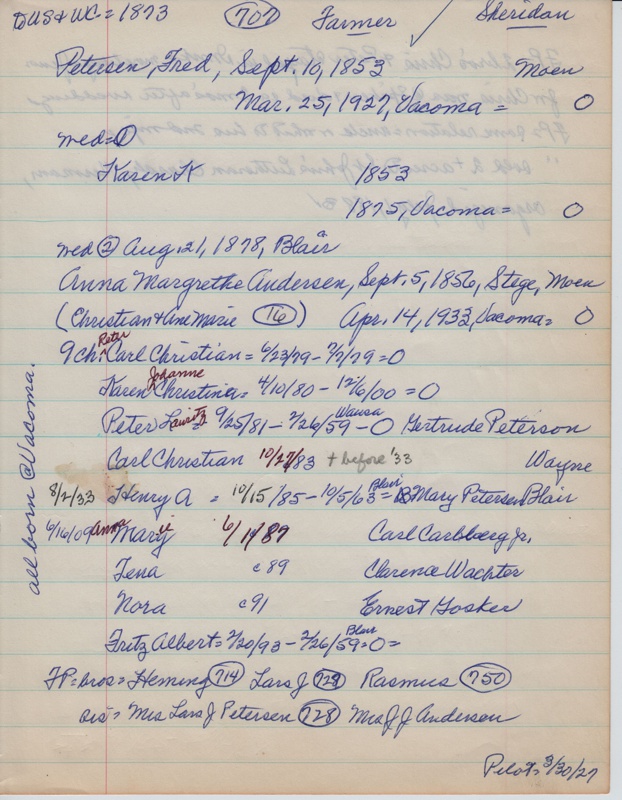 DUS & WC = 1873 707 Farmer ✓ Sheridan
Petersen, Fred, Sept. 10, 1853 Moen
Mar. 25, 1927, Vacoma = O
med = ①
Karen K 1853
1875, Vacoma = O
med ② Aug. 21, 1878, Blair
Anna Margrethe Andersen, Sept. 5, 1856, Stege, Moen
(Christian & Ane Marie 16) Apr. 14, 1933, Vacoma = O
9 ch: Peter Carl Christian = 6/23/79 - 7/2/79 = O
Karen Johanne Christina = 4/10/80 - 12/6/00 = O
Peter Lauritz = 9/25/81 - 2/26/59 Wausa - O Gertrude Peterson
Carl Christian 10/27/83 + before '33 Wayne
8/2/33 Henry A = 10/15/85 - 10/5/63 Blair = Mary Petersen Blair
6/16/09 Anna Marie 6/11/87 Carl Carlsberg Jr.
Tena c 89 Clarence Wachter
Nora c 91 Ernest Gosker
Fritz Albert = 2/20/93 - 2/26/59 Blair = O =
all born @ Vacoma.
FP = bros = Heming 714 Lars J 729 Rasmus 750
sis = Mrs Lars J Petersen 728 Mrs J J Andersen
Pilot = 3/30/27